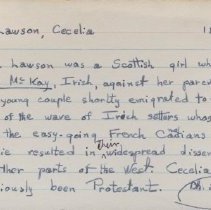 Lawson, Cecelia
Lawson was a Scottish girl wh
McKay, Irish, against her paren
young couple shortly emigrated to
of the wave of Irish settlers whos
the easy-going French Cadians
ie resulted in their widespread disse
ther parts of the West. Cecelia
iously been Protestant.